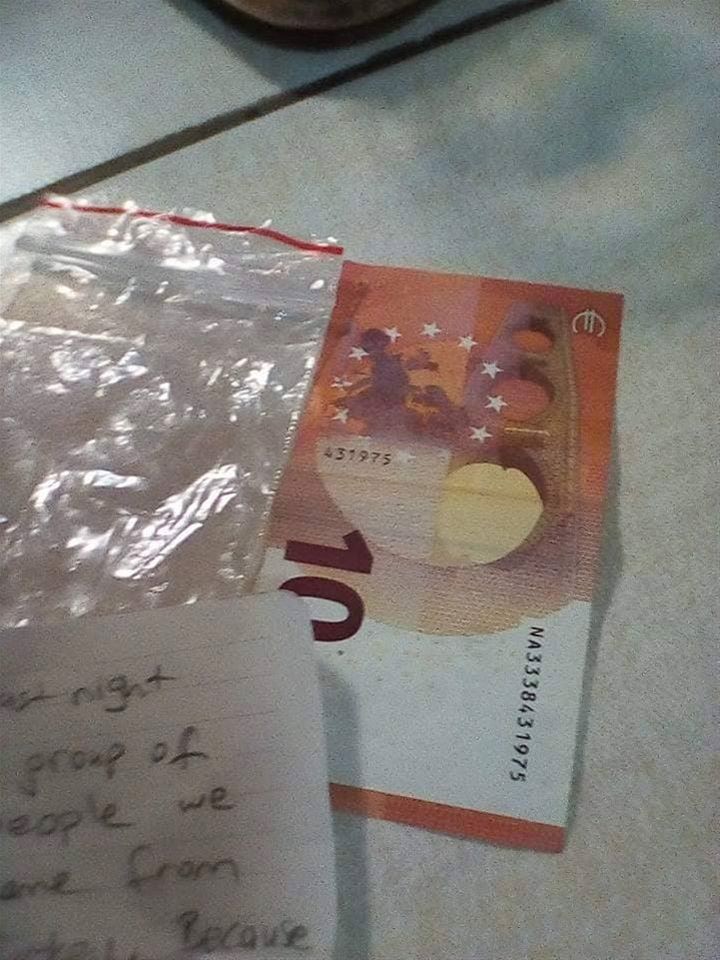 431975
10
NA3338431975
night
group of
people we
from
Because